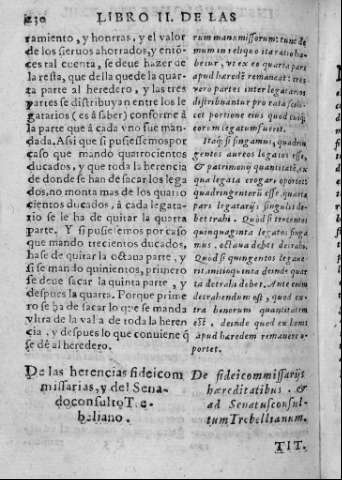 230 LIBRO II. DE LAS
ramiento, y honrras, y el valor
de los sieruos ahorrados, y entõ-
ces tal cuenta, se deue hazer de
la resta, que della quede la quar-
ta parte al heredero, y las tres
partes se distribuyan entre los le
gatarios (es â saber) conforme â
la parte que â cada vno fue man-
dada. Asi que si pusiessemos por
caso que mando quatrocientos
ducados, y que toda la herencia
de donde se han de sacar los lega
dos, no monta mas de los quatro
cientos ducados, â cada legata-
rio se le ha de quitar la quarta
parte. Y si pusiesemos por caso
que mando trecientos ducados,
hase de quitar la octaua parte, y
si se mando quinientos, primero
se deue sacar la quinta parte, y
despues la quarta. Porque prime
ro se ha de sacar lo que se manda
vltra de la valia de toda la heren
cia, y despues lo que conuiene q̃
se dê al heredero.
De las herencias fideicom
missarias, y del Sena-
doconsulto Tre-
beliano.
rum manumissorum: tunc de-
mum in reliquo ita ratio ha-
beatur, vt ex eo quarta pars
apud haredẽ remaneat: tres
vero partes inter legatarios
distribuantur pro rata scili-
cet portione eius quod cuiq;
eorum legatum fuerit.
Itaq; si fingamus, quadrin
gentos aureos legatos esse,
& patrimonij quantitatẽ, ex
qua legata erogari oportet,
quadringentorũ esse, quarta
pars legatarijs singulis de-
bet trahi. Quòd si trecentos
quinquaginta legatos finga
mus, octaua debet detrahi.
Quod si quingentos legaue-
rit, initio quinta deinde quar
ta detrahi debet. Ante enim
detrahendum est, quod ex-
tra bonorum quantitatem
est, deinde quod ex bonis
apud hæredem remanere o-
portet.
De fideicommissarijs
hæreditatibus. &
ad Senatusconsul-
tum Trebellianum.
TIT.